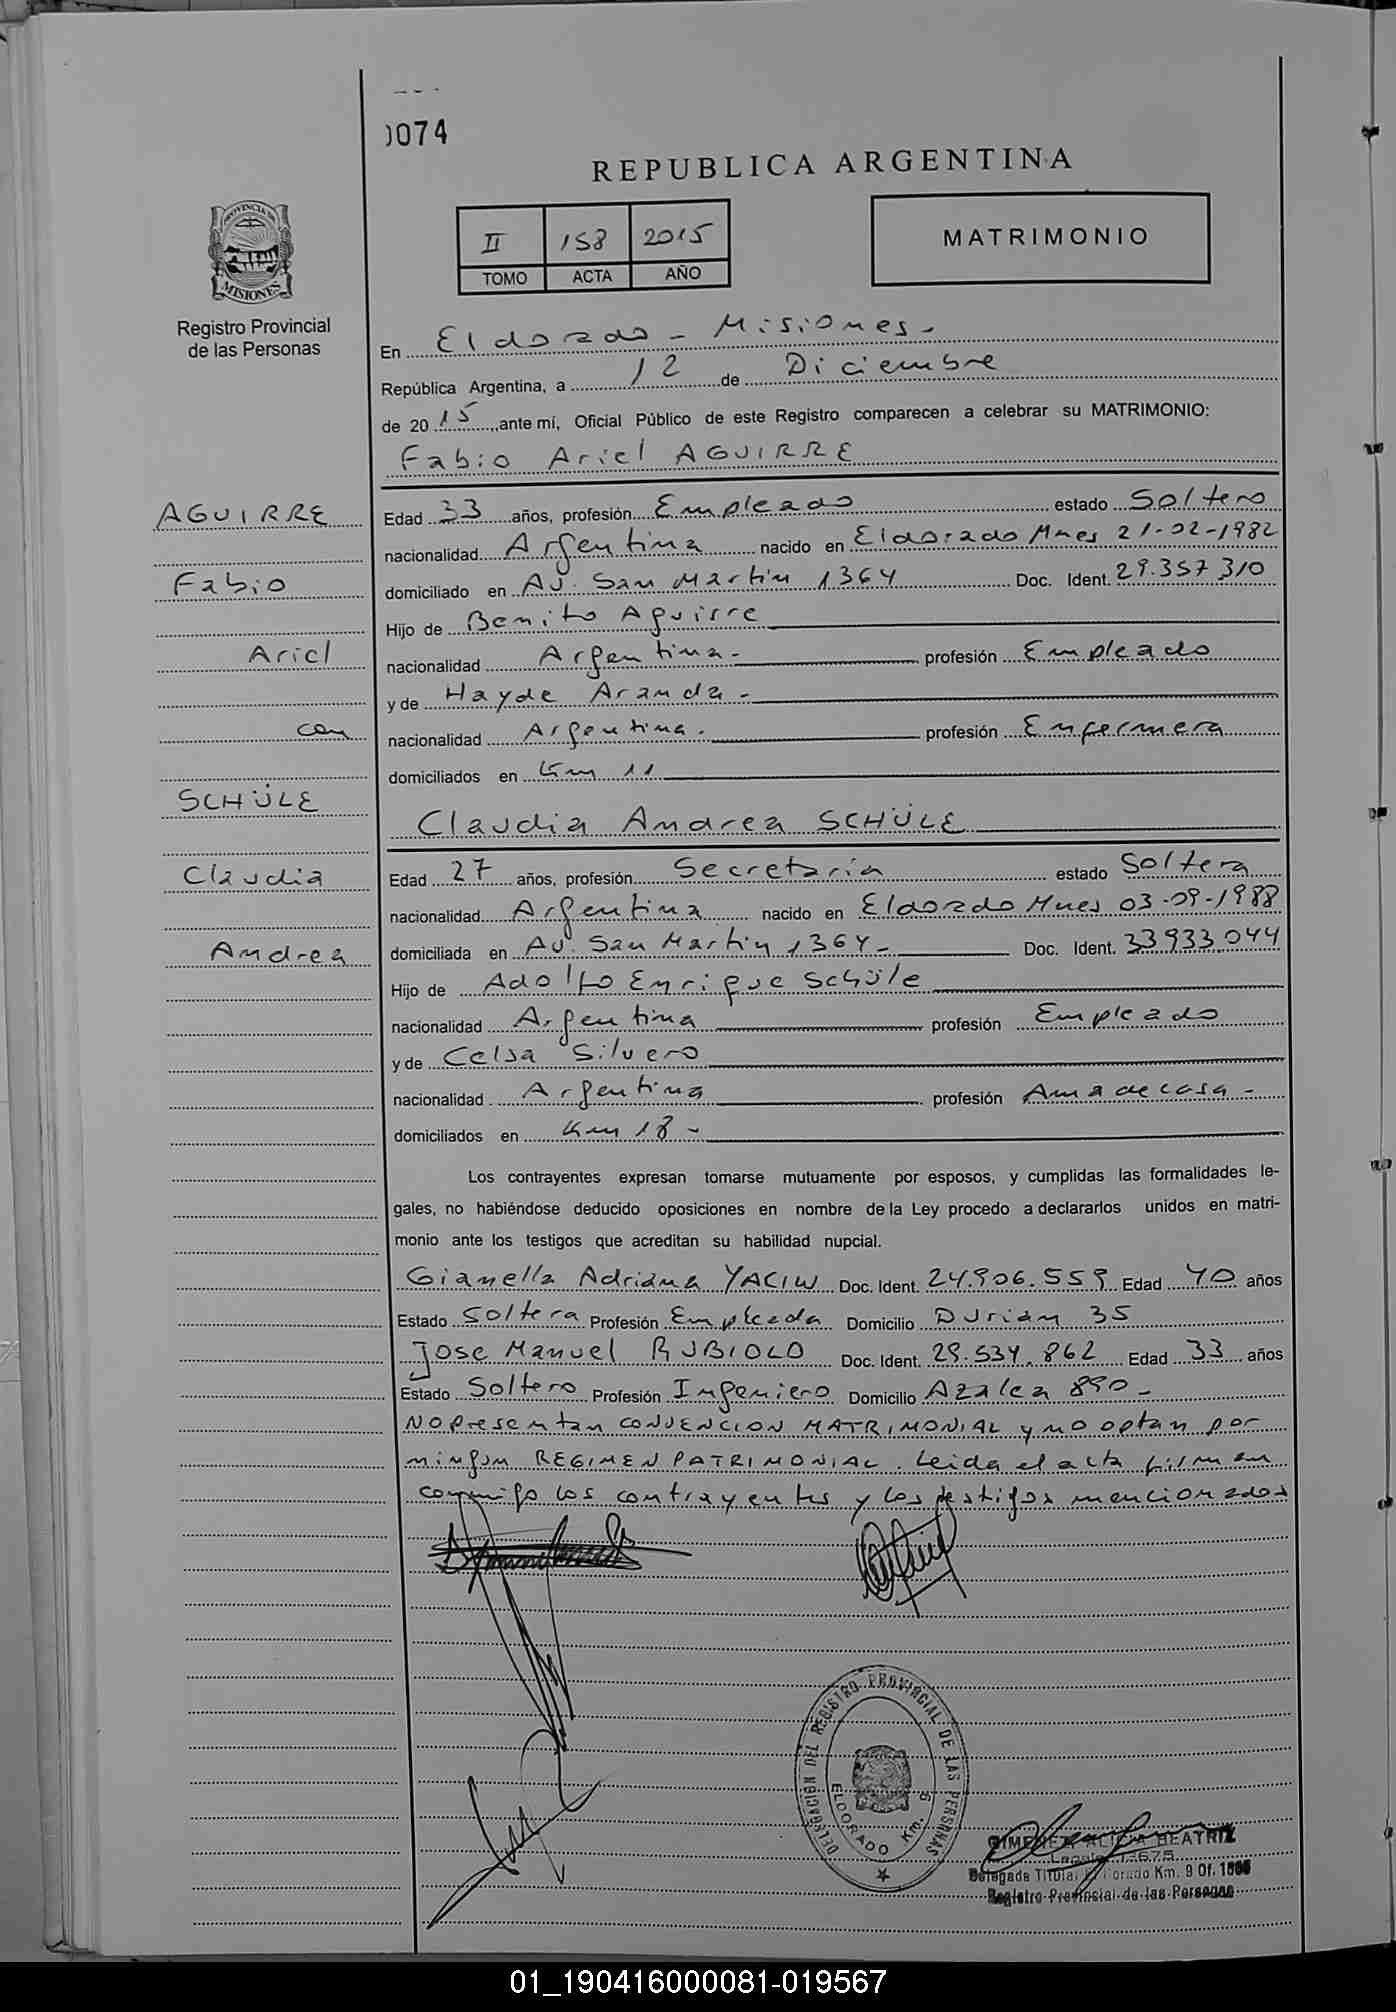 0074
REPUBLICA ARGENTINA
PROVINCIA DE
MISIONES
Registro Provincial
de las Personas
II 158 2015
TOMO ACTA AÑO
MATRIMONIO
En Eldorado - Misiones -
República Argentina, a 12 de Diciembre
de 2015, ante mí, Oficial Público de este Registro comparecen a celebrar su MATRIMONIO:
Fabio Ariel AGUIRRE
AGUIRRE
Fabio
Ariel
con
SCHÜLE
Claudia
Andrea
Edad 33 años, profesión Empleado estado Soltero
nacionalidad Argentina nacido en Eldorado Mnes 21-02-1982
domiciliado en Av. San Martin 1364 Doc. Ident. 29.357310
Hijo de Benito Aguirre
nacionalidad Argentina - profesión Empleado
y de Hayde Aranda -
nacionalidad Argentina. profesión Enfermera
domiciliados en Km 11
Claudia Andrea SCHÜLE
Edad 27 años, profesión Secretaria estado Soltera
nacionalidad Argentina nacido en Eldorado Mnes 03-09-1988
domiciliada en Av. San Martin 1364 - Doc. Ident. 33933044
Hijo de Adolfo Enrique Schüle
nacionalidad Argentina profesión Empleado
y de Celsa Silvero
nacionalidad Argentina profesión Ama de casa -
domiciliados en Km 18 -
Los contrayentes expresan tomarse mutuamente por esposos, y cumplidas las formalidades le-
gales, no habiéndose deducido oposiciones en nombre de la Ley procedo a declararlos unidos en matri-
monio ante los testigos que acreditan su habilidad nupcial.
Gianella Adriana YACIW Doc. Ident. 24.906.559 Edad 40 años
Estado Soltera Profesión Empleada Domicilio Durian 35
Jose Manuel RUBIOLO Doc. Ident. 29.534.862 Edad 33 años
Estado Soltero Profesión Ingeniero Domicilio Azalea 890 -
No presentan CONVENCION MATRIMONIAL y no optan por
ningun REGIMEN PATRIMONIAL. Leida el acta firman
conmigo los contrayentes y los testigos mencionados
DELEGACIÓN DEL REGISTRO PROVINCIAL DE LAS PERSONAS
ELDORADO Km. 9
GIMENEZ ALICIA BEATRIZ
Delegada Titular Eldorado Km. 9 Of.
Registro Provincial de las Personas
01_190416000081-019567